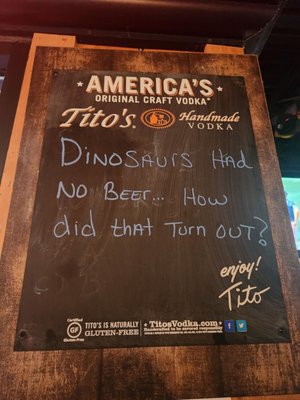 AMERICA'S
ORIGINAL CRAFT VODKA
Tito's Handmade
VODKA
DINOSAURS HAD
NO BEER... HOW
did that TURN OUT?
enjoy!
Tito
Certified
GF
Gluten-Free
TITO'S IS NATURALLY
GLUTEN-FREE
TitosVodka.com
Handcrafted to be savored responsibly